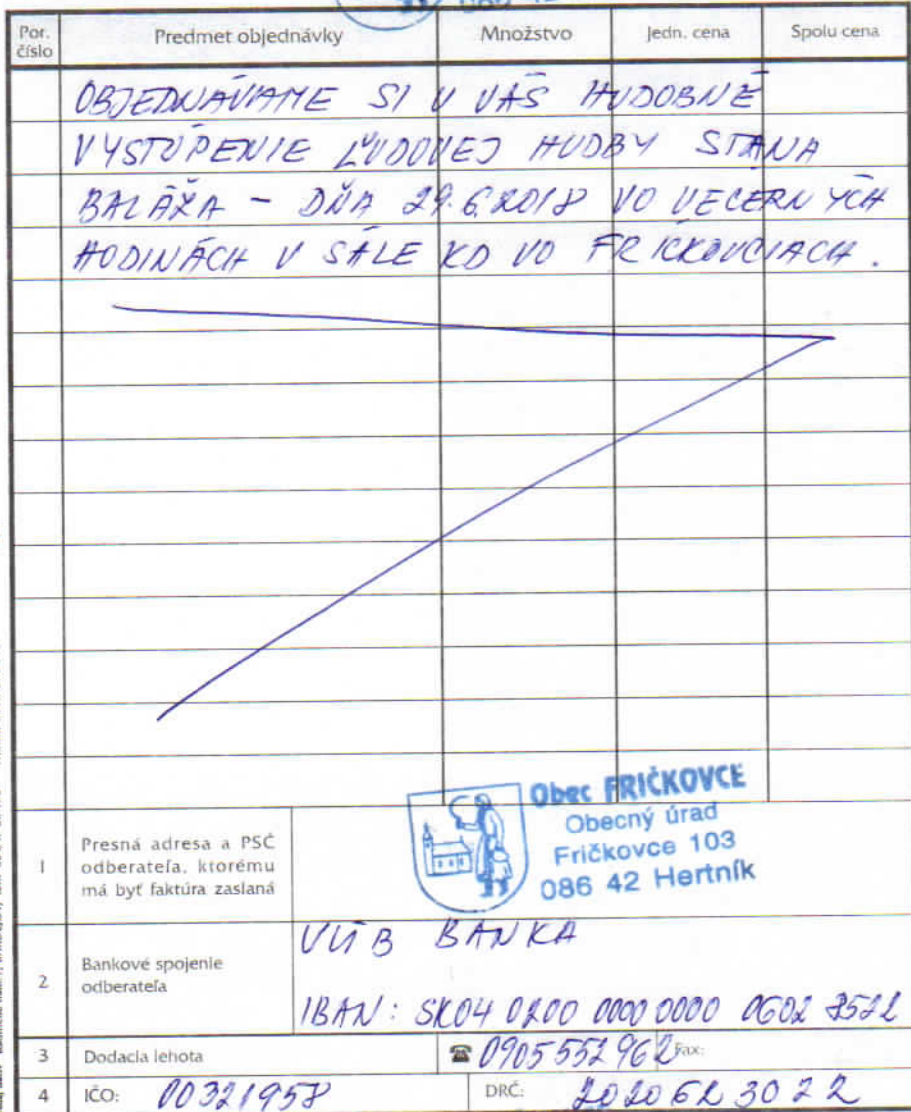 Por. číslo Predmet objednávky Množstvo Jedn. cena Spolu cena
OBJEDNÁVAME SI U VÁS HUDOBNÉ
VYSTÚPENIE ĽUDOVEJ HUDBY STANA
BALÁŽA - DŇA 29.6.2018 VO VEČERNÝCH
HODINÁCH V SÁLE KD VO FRIČKOVCIACH.
Obec FRIČKOVCE
Obecný úrad
Fričkovce 103
086 42 Hertník
1 Presná adresa a PSČ
odberateľa, ktorému
má byť faktúra zaslaná
VÚB BANKA
2 Bankové spojenie
odberateľa
IBAN: SK04 0200 0000 0000 0602 3522
3 Dodacia lehota ☎ 0905 552 962 Fax:
4 IČO: 00321958 DRČ: 2020623022